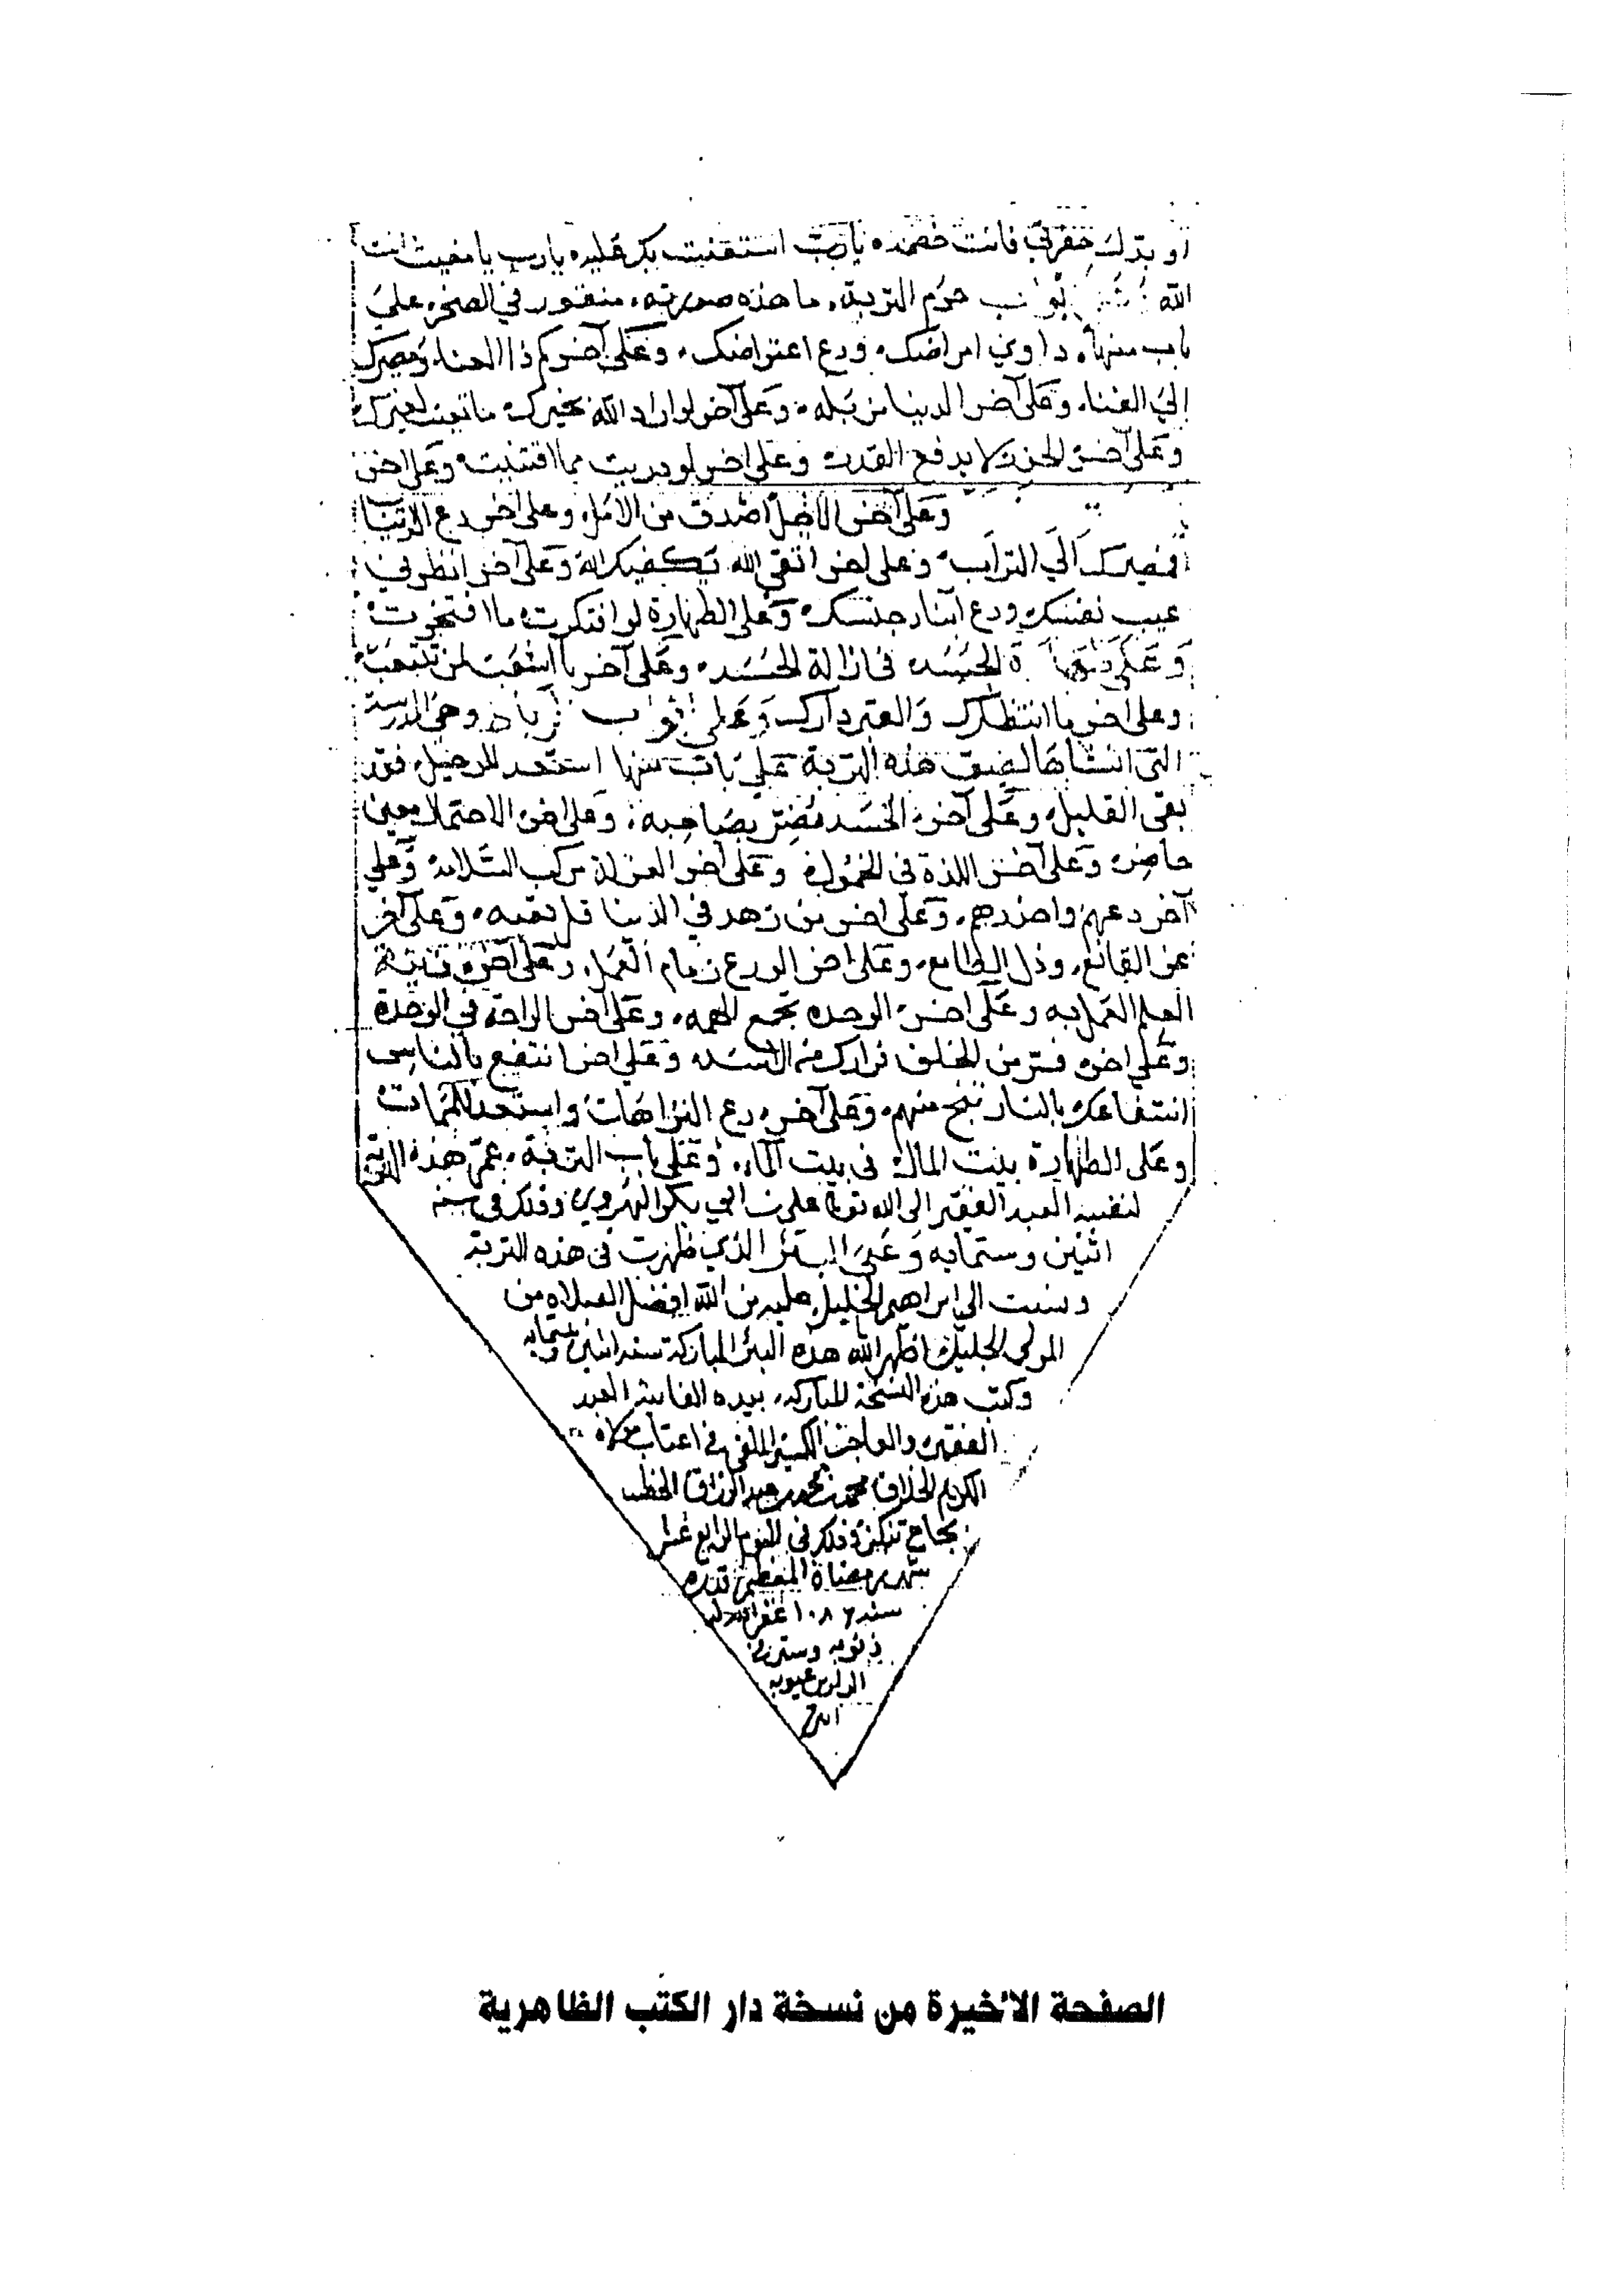 او بدلك حفرتي فانت خصمه يا رب استغثت بك يا رب يا مغيث انت
الله ابواب حرم التربة ما هذه صورته منقور في الصخر على
باب منها داوي امراضك ودع اعتراضك وعلى آخر كم ذا العنا ومصيرك
إلى الفنا وعلى آخر الدنيا مزبله وعلى آخر لو اراد الله بخيرك ما تعبت لغيرك
وعلى آخر الحزن لا يدفع القدر وعلى اخر لو دريت مما اقتنيت وعلى اخر
وعلى آخر الاجل اصدق من الامل وعلى اخر دع الارتياب
فمصيرك الى التراب وعلى اخر اتقي الله تكفيك الله وعلى آخر انظر في
عيب نفسك ودع آثار جنسك وعلى الطهارة لو افتكرت ما افتخرت
وعلى الجسد في ازالة الحسد وعلى آخر ما اشغب لمن تتعب
وعلى اخر ما انتظارك والقبر دارك وعلى ابواب وهي المدرسة
التي انشاها لضيق هذه التربة على باب منها استعد للرحيل فقد
بقي القليل وعلى آخر الحسد مضر بصاحبه وعلى اخر الاحتمال معين
حاضر وعلى آخر اللذة في الخمول وعلى اخر العزلة مركب السلامه وعلى
آخر دعهم واحذرهم وعلى اخر من زهد في الدنيا قل تعبه وعلى آخر
عز القانع وذل الطامع وعلى اخر الورع زمام العمل وعلى آخر زينة
العلم العمل به وعلى اخر الوحده تجمع الهمه وعلى آخر الراحة في الوحدة
وعلى اخر فر من الخلق فرارك من الاسد وعلى اخر انتفع بالناس
انتفاعك بالنار تنج منهم وعلى آخر دع النزاهات واستعد للممات
وعلى الطهارة بيت المال في بيت الماء وعلى باب التربة عمر هذه التربة
لنفسه العبد الفقير الى الله تعالى علي بن ابي بكر الهروي وذلك في سنه
اثنين وستمايه وعلى البئر الذي ظهرت في هذه التربة
ونسبت الى ابراهيم الخليل عليه من الله افضل الصلاه من
المولى الجليل اظهر الله هذه البئر المباركة سنة اثنين وستمايه
وكتب هذه النسخة المباركه بيده الفانية العبد
الفقير والعاجز الكسير الملقى في اعتاب مولاه
الكريم الخلاق محمد بن محمد بن عبد الرزاق الخطيب
بجامع تنكز وذلك في اليوم الرابع عشر
شهر رمضان المعظم قدره
سنه ١٠٨٦ غفر الله له
ذنوبه وستر في
الدارين عيوبه
امين
الصفحة الأخيرة من نسخة دار الكتب الظاهرية